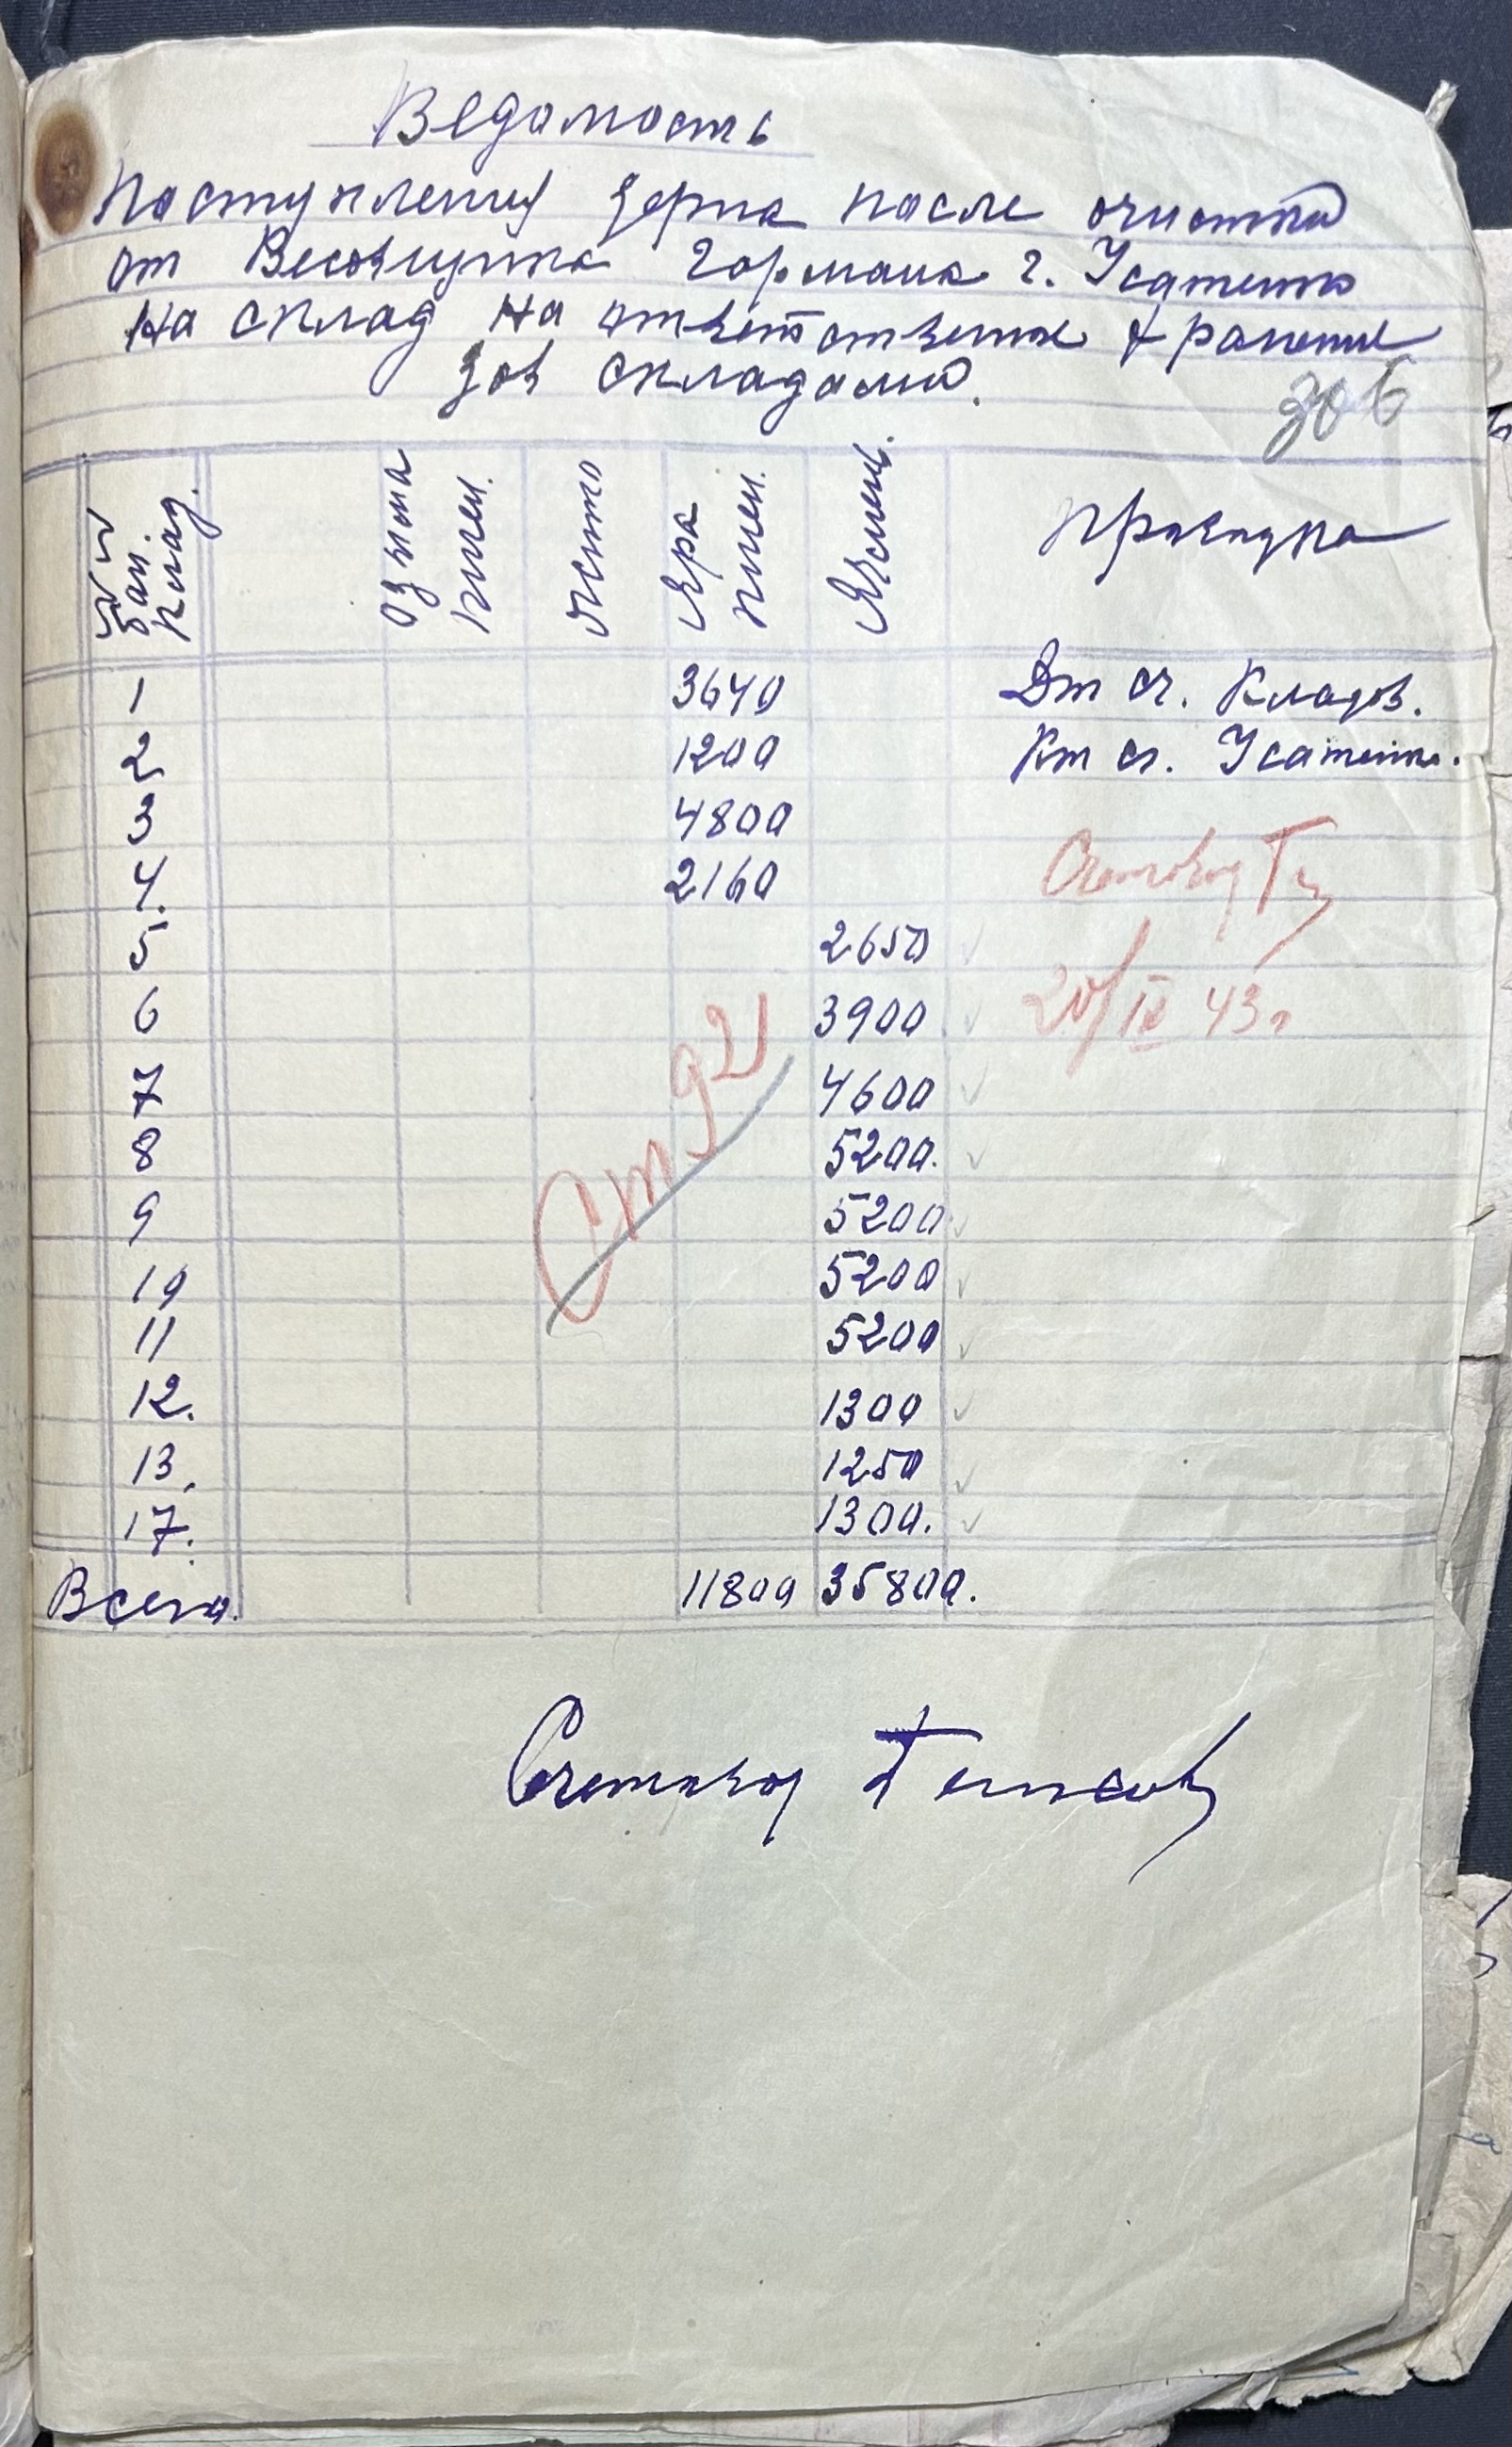 Ведомость
поступления зерна после очистки
от Весовщика Гормана г. Усатенко
на склад на ответственое хранение
Зав складами.
306
№№ бан. клад.
Озима пшен.
Жито
Яра пшен.
Ячмень.
проводка
1 3640 Дт сч. Кладов.
2 1200 Кт сч. Усатенко.
3 4800
4. 2160 Счетовод
5 2650
6 3900 20/IX 43 г
7 4600
Ст 92
8 5200.
9 5200
10 5200
11 5200
12. 1300
13. 1250
17. 1300.
Всего. 11800 35800.
Счетовод